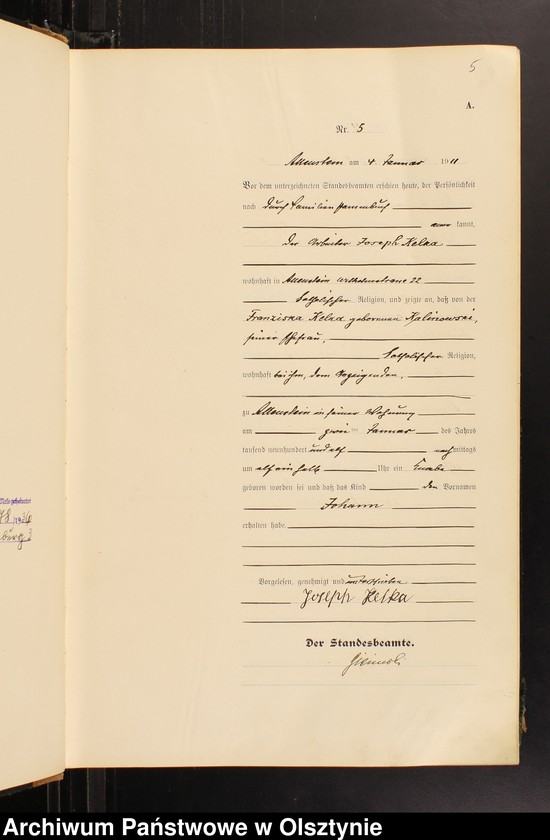 5
A.
Nr. 5
Allenstein am 4 Januar 1911
Vor dem unterzeichneten Standesbeamten erschien heute, der Persönlichkeit
nach durch Familienstammbuch
kannt,
der Arbeiter Joseph Kelka
wohnhaft in Allenstein, Wilhelmstrasse 22
katholischer Religion, und zeigte an, daß von der
Franziska Kelka geborenen Kalinowski,
seiner Ehefrau,
katholischer Religion,
wohnhaft bei ihm, dem Anzeigenden,
zu Allenstein in seiner Wohnung
am zwei ten Januar des Jahres
tausend neunhundert und elf nachmittags
um elf ein halb Uhr ein Knabe
geboren worden sei und daß das Kind den Vornamen
Johann
erhalten habe.
Vorgelesen, genehmigt und unterschrieben
Joseph Kelka
Der Standesbeamte.
burg
Archiwum Państwowe w Olsztynie